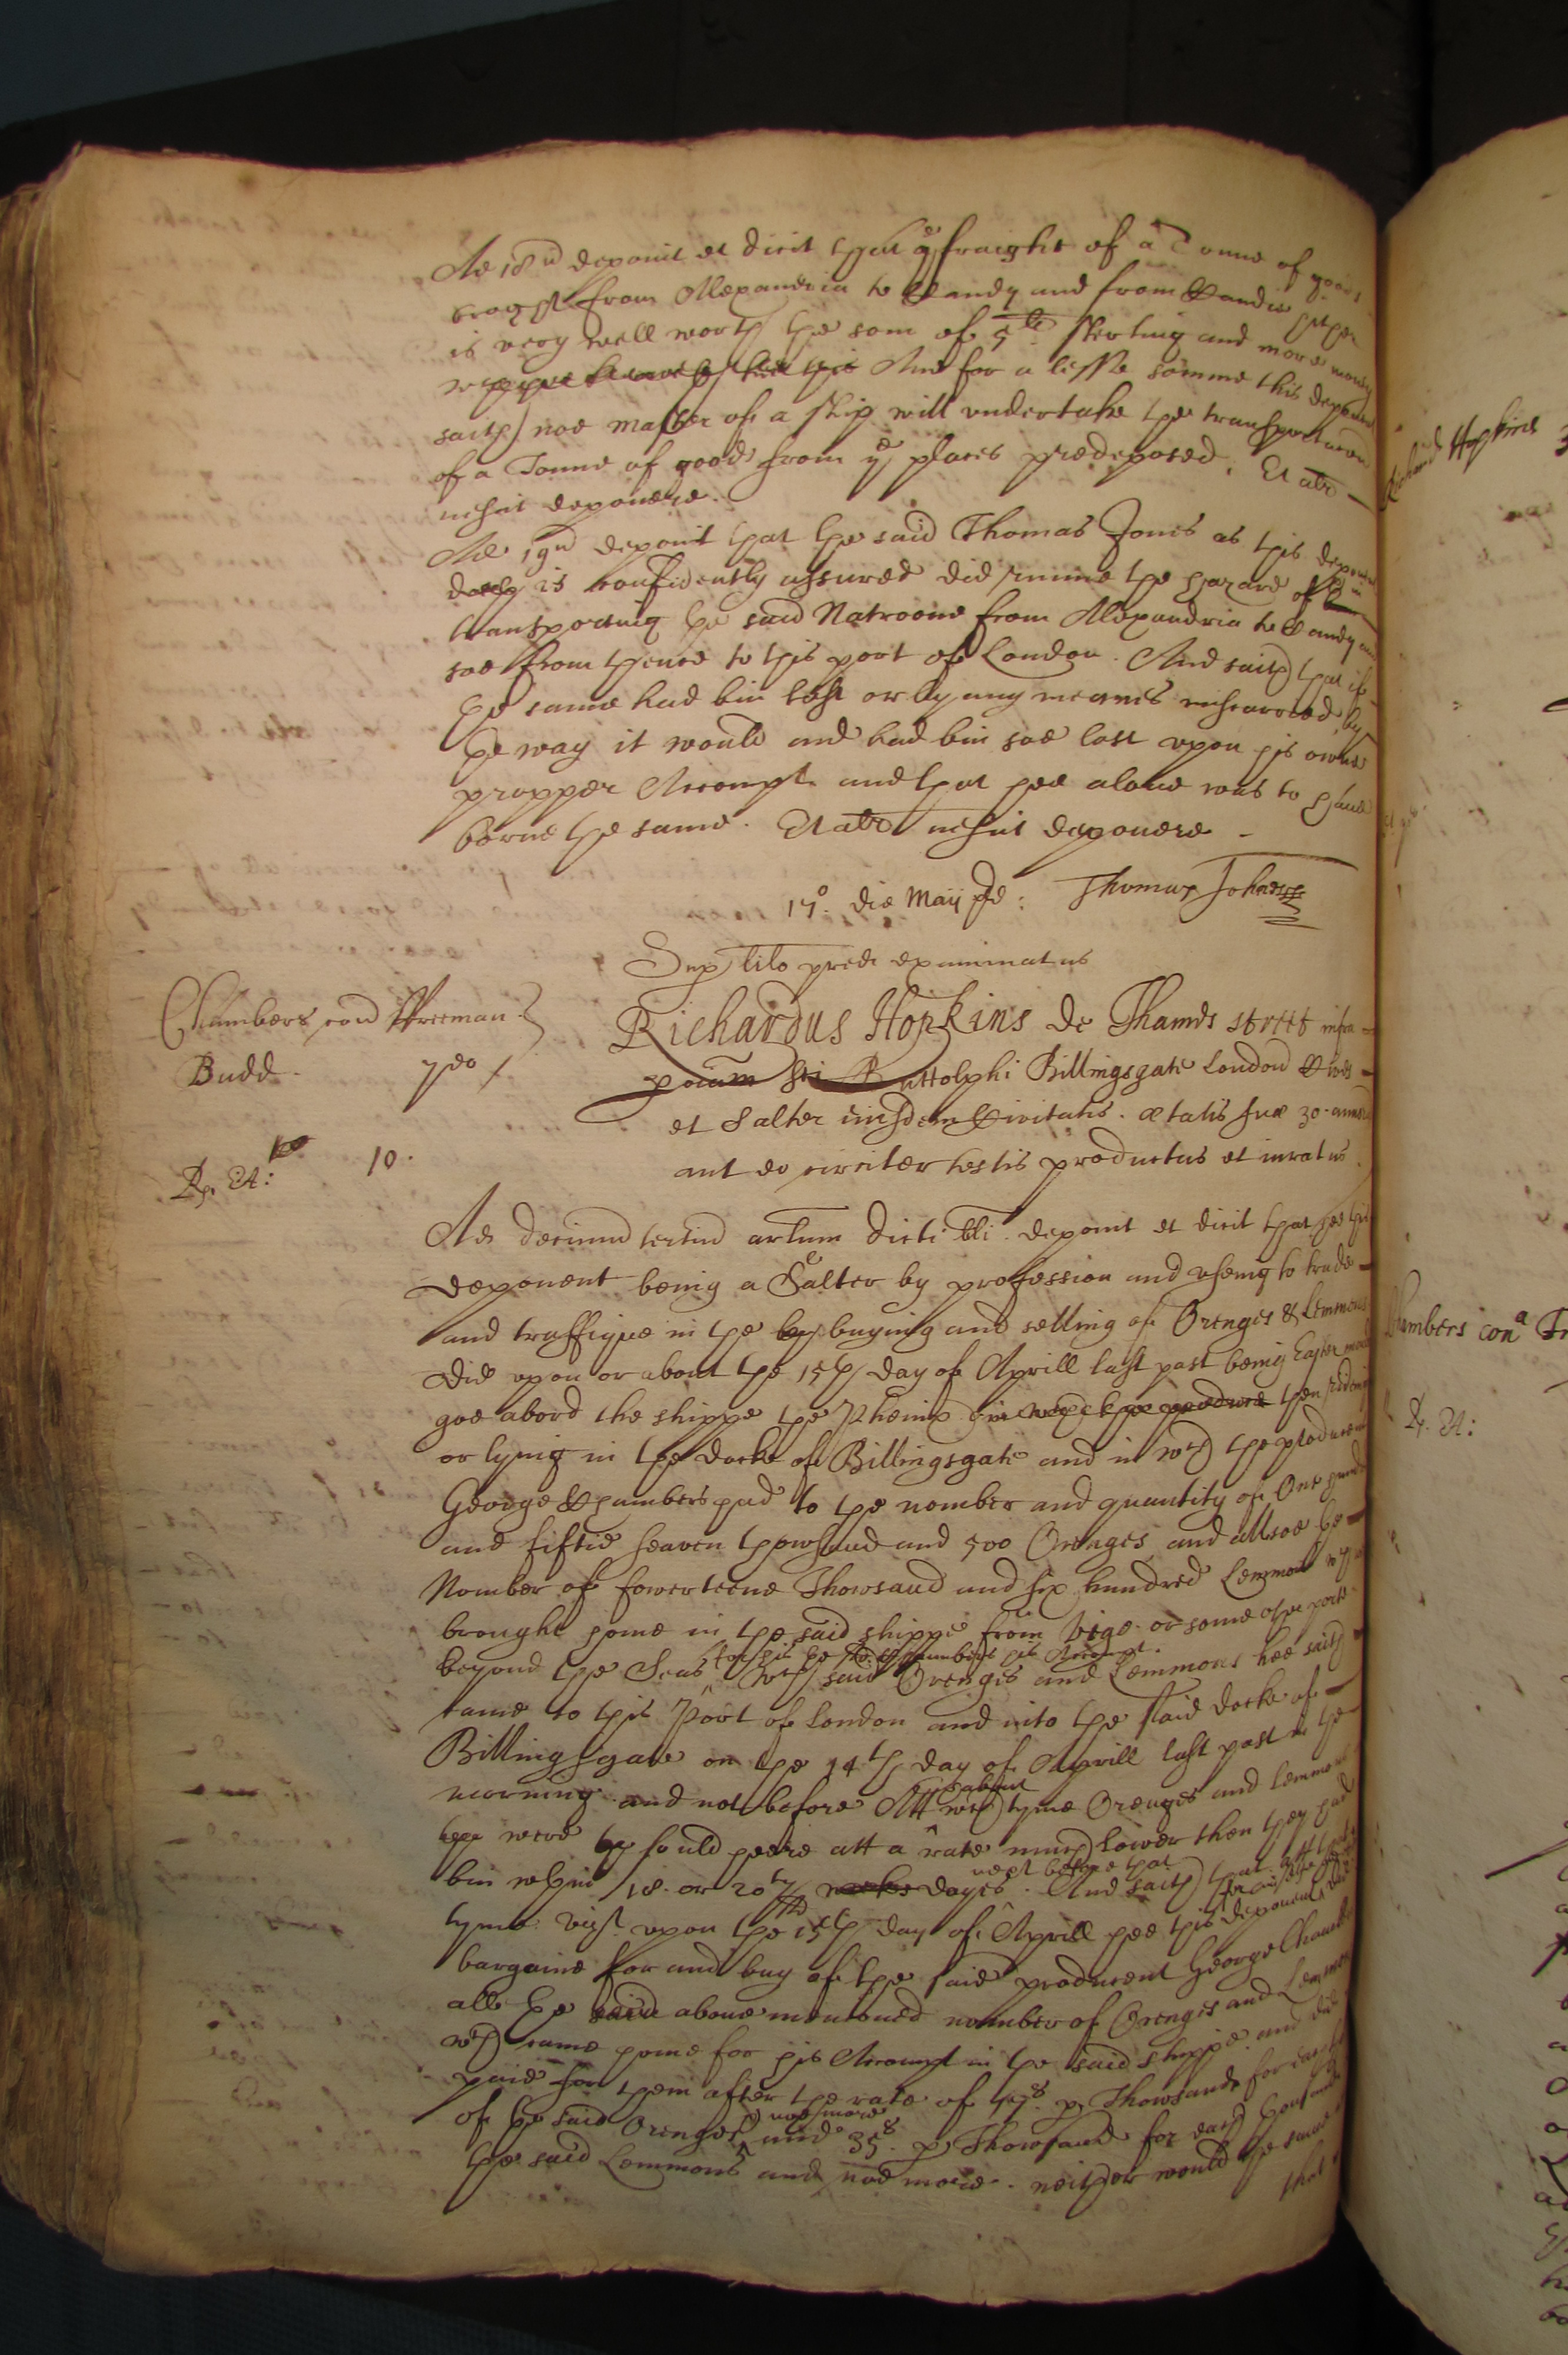 Ad 18u deponit et dicit that ye fraight of a Tonne of goods
brought from Alexandria to Candy and from Candie hither
is very well worth the som of 5li sterling and more money
And for a lesse somme this deponent
saith noe master of a ship will undertake the transportacon
of a Tonne of goods from ye places predeposed, Et alr
nescit deponere.
Ad 19u deponit that the said Thomas Jones as this deponent
is confidently assured did runne the hazard of
transporting the said Natroone from Alexandria to Candy and
soe from thence to this port of London. And saith that if
the same had bin lost or by any meanes miscarried by
the way it would and had bin soe lost upon his owne
propper Accompt and that hee alone was to have
borne the same. Et alr nescit deponere -
17o. die Maij pd: Thomas Johnes
Sup lilo pred examinatus
Chambers con Freeman
Budd. 7do
Richardus Hopkins de Thames street infra
pociam Sti Buttolphi Billingsgate London Cives
et Salter eiusdem Civitatis. ætatis suæ 30. annor
aut eo circiter testis productus et iuratus.
Rp. EA: 10.
Ad decimu tertiu arlum dicti lli. deponit et dicit that hee this
deponent being a Salter by profession and useing to trade
and traffique in the buying and selling of Orenges & Lemmons
did upon or about the 15th day of Aprill last past being Easter
goe abord the shippe the Phenix then rideing
or lyeing in the docke of Billingsgate and in wch the producent
George Chambers had to the nomber and quantity of One hundred
and fiftie seaven thowsand and 500 Orenges and allsoe the
Nomber of fowerteene Thowsand and six hundred Lemmons wch
brought home in the said shippe from Vigo or some other porte
beyond the Seas for his the sd Chambers his Accompt.
wch said Orenges and Lemmons hee saith
came to this Port of London and into the said docke of
Billingsgate on the 14th day of Aprill last past in the
morning and not before Att wch tyme Orenges and Lemmons
about
were sould heere att a rate much lower then they had
bin within 18. or 20th dayes next before that. And saith that att the
tyme vizt upon the 15th day of Aprill hee this deponent did
bargaine for and buy of the said producent George Chambers
all the said above mentioned nomber of Orenges and Lemmons
wch came home for his Accompt in the said shippe. and did
paie for them after the rate of 17s. p Thowsand for each
of the said Orenges & noe more and 35s. p Thowsand for each thousand
the said Lemmons and noe more. neither would the same
that
Richard Hopkins
Chambers cona Fr
Rp. EA: